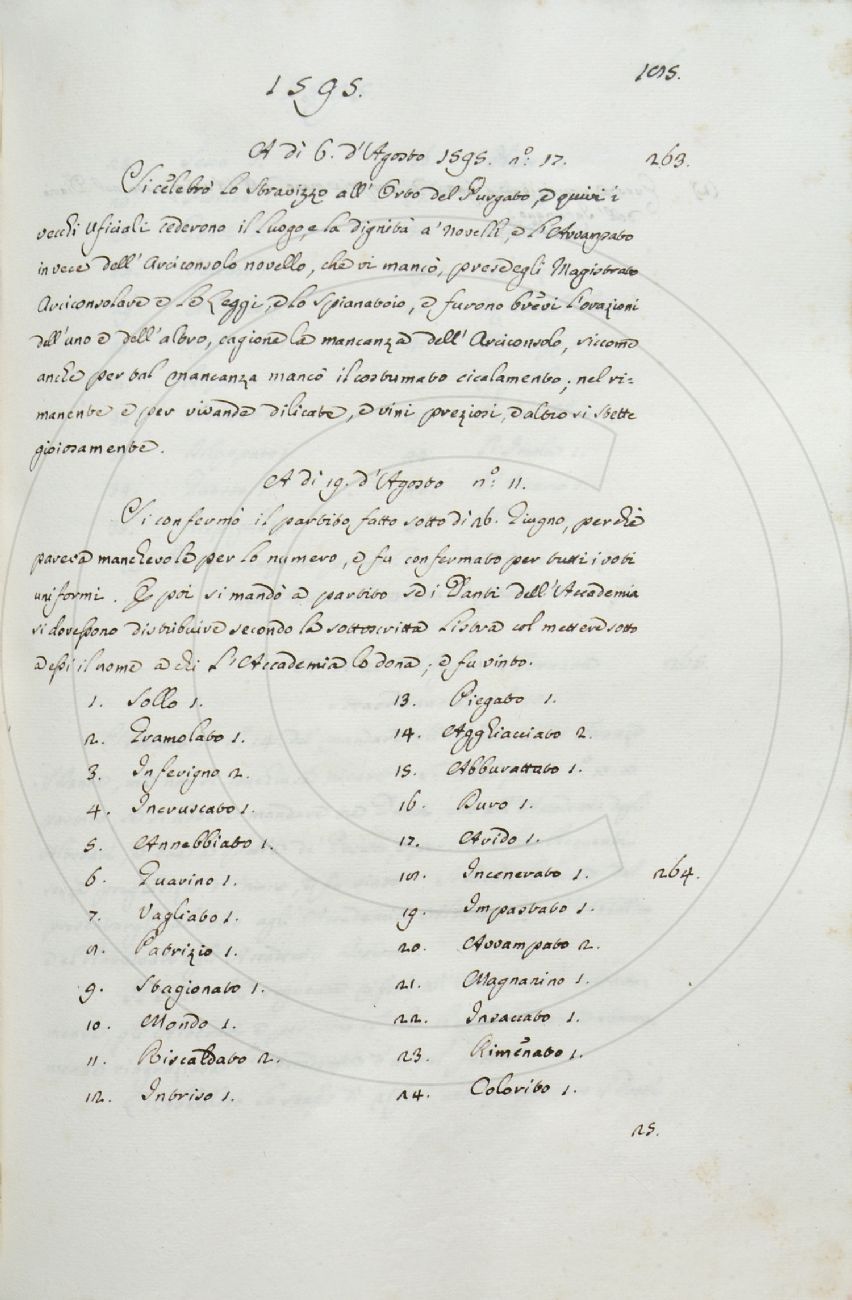 1595.
185.
A dì 6. d'Agosto 1595. n.º 17.
263.
Si celebrò lo Stravizzo all'Orto del Purgato, e quivi i
vecchi Uficiali cederono il luogo, e la dignità a' novelli, e l'Avvampato
in vece dell'Arciconsolo novello, che vi mancò, prese degli Magistrato
Arciconsolare e le Leggi, e lo Spianatoio, e furono brevi l'orazioni
dell'uno e dell'altro, cagione la mancanza dell'Arciconsolo, siccome
anche per tal mancanza mancò il costumato cicalamento; nel ri=
manente e per vivande dilicate, e vini preziosi, e altro si stette
gioiosamente.
A dì 19. d'Agosto n.º 11.
Si confermò il partito fatto sotto dì 26. Giugno, perchè
pareva manchevole per lo numero, e fu confermato per tutti i voti
uniformi. E poi si mandò a partito se i Danti dell'Accademia
si dovessono distribuire secondo la sottoscritta Listra col mettere sotto
a essi il nome a chi l'Accademia lo dona; e fu vinto.
1. Sollo 1.
2. Gramolato 1.
3. Inferigno 2.
4. Incruscato 1.
5. Annebbiato 1.
6. Guarino 1.
7. Vagliato 1.
8. Patrizio 1.
9. Stagionato 1.
10. Mondo 1.
11. Riscaldato 2.
12. Intriso 1.
13. Piegato 1.
14. Agghiacciato 2.
15. Abburattato 1.
16. Duro 1.
17. Arido 1.
18. Incenerato 1.
264.
19. Impastato 1.
20. Avvampato 2.
21. Magnanino 1.
22. Insaccato 1.
23. Rimenato 1.
24. Colorito 1.
25.